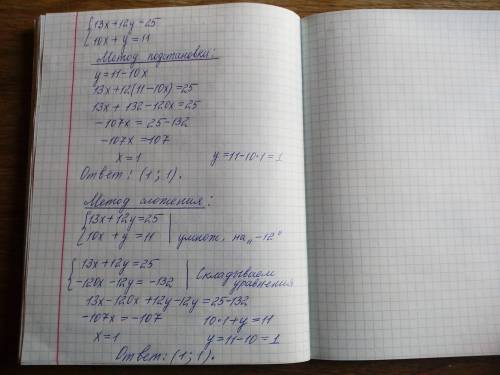 {13x+12y=25
{10x+y=11
Метод подстановки:
y=11-10x
13x+12(11-10x)=25
13x+132-120x=25
-107x=25-132
-107x=107
x=1 y=11-10·1=1
Ответ: (1;1).
Метод сложения:
{13x+12y=25
{10x+y=11 | умнож. на „-12"
{13x+12y=25
{-120x-12y=-132 | Складываем уравнения
13x-120x+12y-12y=25-132
-107x=-107 10·1+y=11
x=1 y=11-10=1
Ответ: (1;1).